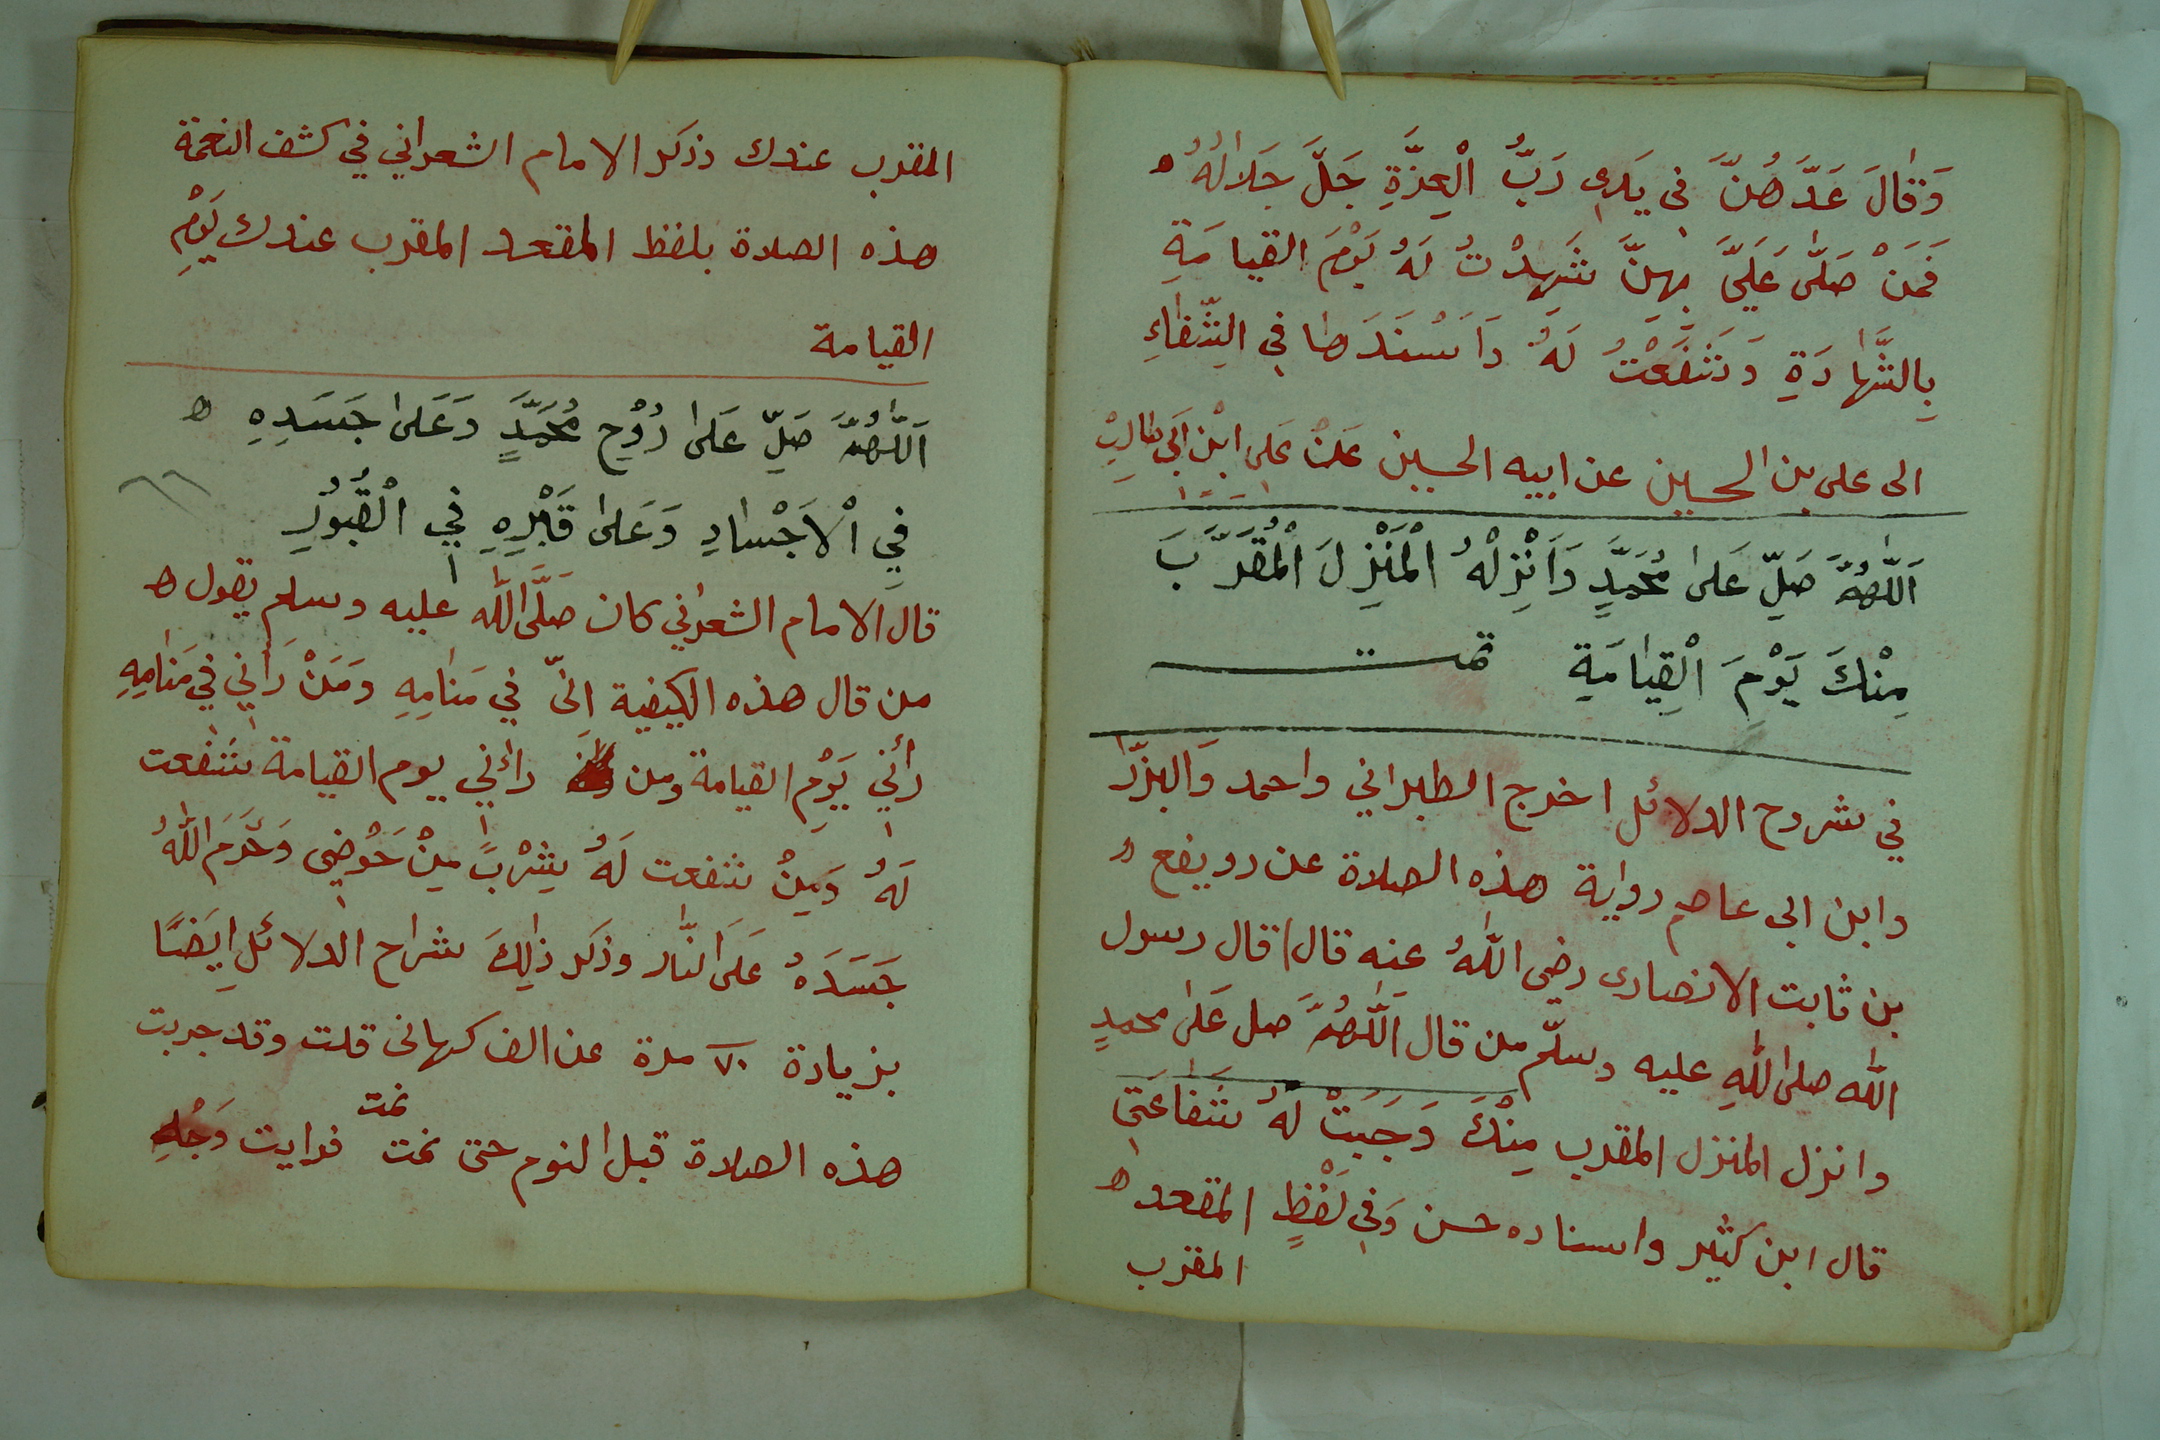 وَقَالَ عَدَّهُنَّ فِي يَدِي رَبُّ الْعِزَّةِ جَلَّ جَلَالُهُ ه
فَمَنْ صَلَّى عَلَيَّ بِهِنَّ شَهِدْتُ لَهُ يَوْمَ القيامَةِ
بِالشَّهَادَةِ وَتَشَفَّعْتُ لَهُ وَاَسْنَدَها فِي الشِّفَاءِ
الى على بن الحسين عن ابيه الحسين عَنْ عَلِى ابْنِ اَبِي طَالِبْ
اَللّٰهُمَّ صَلِّ عَلىٰ مُحَمَّدٍ وَاَنْزِلْهُ الْمَنْزِلَ الْمُقَرَّبَ
مِنْكَ يَوْمَ الْقِيَامَةِ تمت
في شروح الدلائل اخرج الطبراني واحمد وَالبزّار
وابن ابى عاصم رواية هذه الصلاة عن رويفع ه
بن ثابت الانصارى رضى اللّٰهُ عنه قال قال رسول
اللّٰه صلى اللّٰهِ عليه وسلّم من قال اَللّٰهُمَّ صل عَلىٰ محمدٍ
وانزل المنزل المقرب مِنْكَ وَجَبَتْ لَهُ شَفَاعَتِى
قال ابن كثير واسناده حسن وَفِي لَفْظٍ المقعد ه
المقرب
المقرب عندك وذكر الامام الشعراني في كشف النغمة
هذه الصلاة بلفظ المقعد المقرب عندك يَوْمِ
القيامة
اَللّٰهُمَّ صَلِّ عَلىٰ رُوْحِ مُحَمَّدٍ وَعَلىٰ جَسَدِهِ ه
فِي اْلاَجْسَادِ وَعَلىٰ قَبْرِهِ فِي الْقُبُوْرِ
قال الامام الشعراني كان صَلَّى اللّٰه عليه وسلم يقول ه
من قال هذه الكيفية اِنّى في مَنَامِهِ وَمَنْ رَاٰنِي فِي مَنَامِهِ
رأني يَوْمِ القيامة ومن راٰني يوم القيامة شَفَعت
لَهُ وَمِنْ شفعت لَهُ يِشْرَبَ مِنْ حَوْضِى وَحَرَّمَ اللّٰهُ
جَسَدَهُ عَلَى النَّار وذكر ذٰلِكَ شراح الدلائل اَيضًا
بزيادة ٧٠ مرة عن الفاكهانى قلت وقد جربت
هذه الصلاة قبل النوم حتى نمت فرايت وَجْهِ
نمت